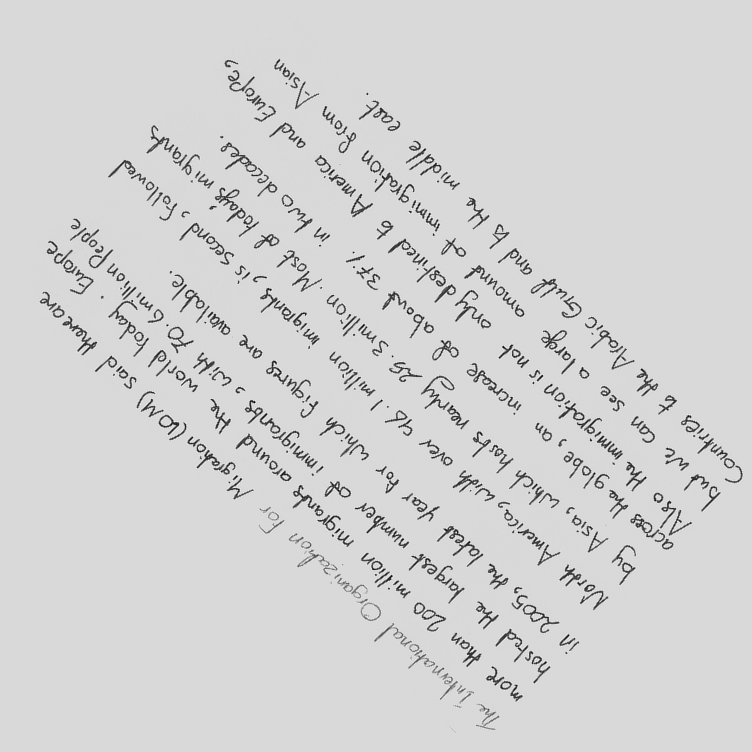 The International Organization For Migration (IOM) said there are
more than 200 million migrants around the world today. Europe
hosted the largest number of immigrants, with 70.6 million People
in 2005, the latest year for which figures are available.
North America, with over 45.1 million imigrants, is second, followed
by Asia, which hosts nearly 25.3 million. Most of today's migrants
across the globe, an increase of about 37% in two decades.
Also the immigration is not only destined to America and Europe,
but we can see a large amound of immigration from Asian
Countries to the Arabic Gulf and to the middle east.